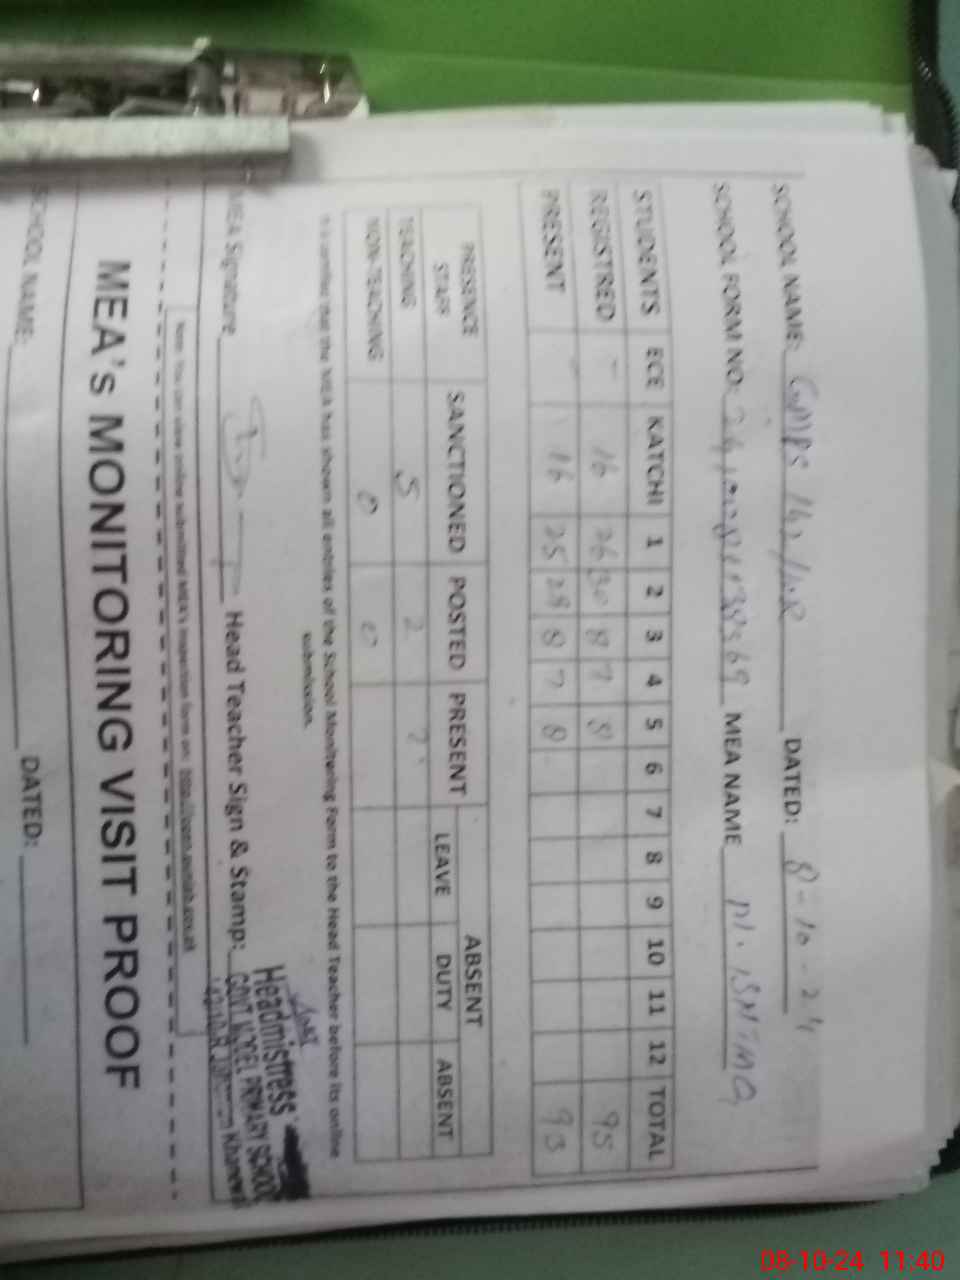 SCHOOL NAME: GMPS 142/10R DATED: 8-10-24
SCHOOL FORM NO: MEA NAME
STUDENTS ECE KATCHI 1 2 3 4 5 6 7 8 9 10 11 12 TOTAL
REGISTRED - 16 26 30 8 7 8 95
PRESENT - 16 25 29 8 7 8 93
PRESENCE STAFF SANCTIONED POSTED PRESENT ABSENT
LEAVE DUTY ABSENT
TEACHING 5 2 2
NON-TEACHING 0 0
It is certified that the MEA has shown all entries of the School Monitoring Form to the Head Teacher before its online
submission.
MEA Signature Head Teacher Sign & Stamp:
Headmistress
GOVT. MODEL PRIMARY SCHOOL
Note: You can view online submitted MEA's inspection form on:
MEA's MONITORING VISIT PROOF
SCHOOL NAME: DATED:
08-10-24 11:40